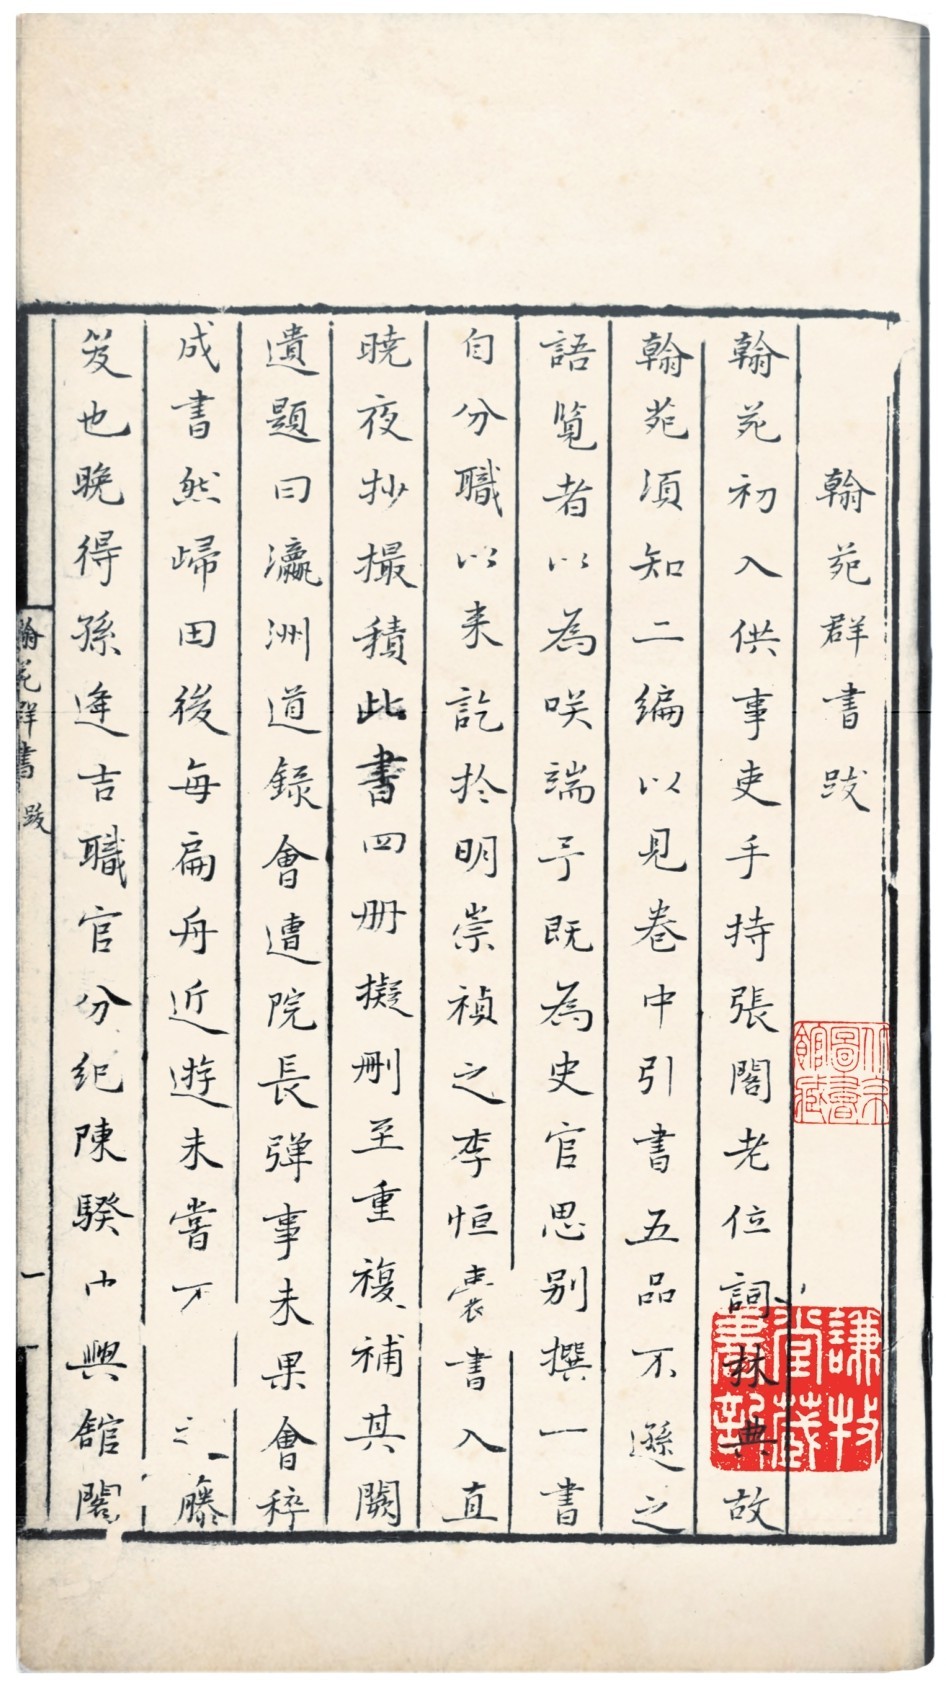 翰苑群書跋
翰苑初入供事吏手持張閣老位詞林典故
翰苑須知二編以見卷中引書五品不遜之
語覽者以為咲端予既為史官思别撰一書
自分職以来訖扵明崇禎之季恒囊書入直
曉夜抄撮積此書四册擬刪至重複補其闕
遺題曰瀛洲道錄會遭院長弹事未果會稡
成書然歸田後每扁舟近遊未嘗不之藤
笈也晚得孫逢吉職官分纪陳騤中興館閣
翰苑群書 跋
一
北京圖書館藏
謙牧堂藏書記